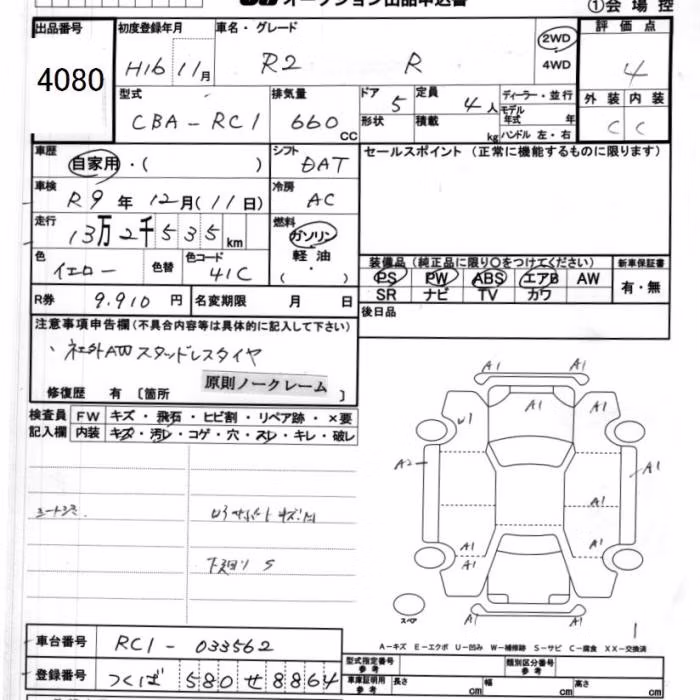 オークション出品申込書
①会場控
出品番号 4080
初度登録年月 H16 11月
車名・グレード R2 R
2WD
4WD
評価点 4
外装 C 内装 C
型式 CBA-RC1
排気量 660 CC
ドア 5
形状
定員 4人
積載 kg
ディーラー・並行
モデル年式 年
ハンドル 左・右
車歴 自家用・( )
シフト DAT
セールスポイント (正常に機能するものに限ります)
車検 R9年 12月(11日)
冷房 AC
走行 13万2千535km
燃料 ガソリン
軽油
( ・ )
色 イエロー 色替 色コード 41C
装備品(純正品に限り○をつけてください)
PS PW ABS エアB AW
SR ナビ TV カワ
新車保証書
有・無
R券 9.910円 名変期限 月 日
後日品
注意事項申告欄(不具合内容等は具体的に記入して下さい)
、社外AWスタッドレスタイヤ
原則ノークレーム
修復歴 有〔箇所 〕
検査員記入欄 FW キズ・飛石・ヒビ割・リペア跡・×要
内装 キズ・汚レ・コゲ・穴・スレ・キレ・破レ
下廻り S
A1
A1
A1 A1 A1
U1
A2 A1
A1
A1 A1
A1 A1
A1
スペア
1
A-キズ E-エクボ U-凹み W-補修跡 S-サビ C-腐食 XX-交換済
車台番号 RC1-033562
登録番号 つくば 580 せ 8864
型式指定番号 参考
類別区分番号 参考
車庫証明用参考 長さ cm 幅 cm 高さ cm